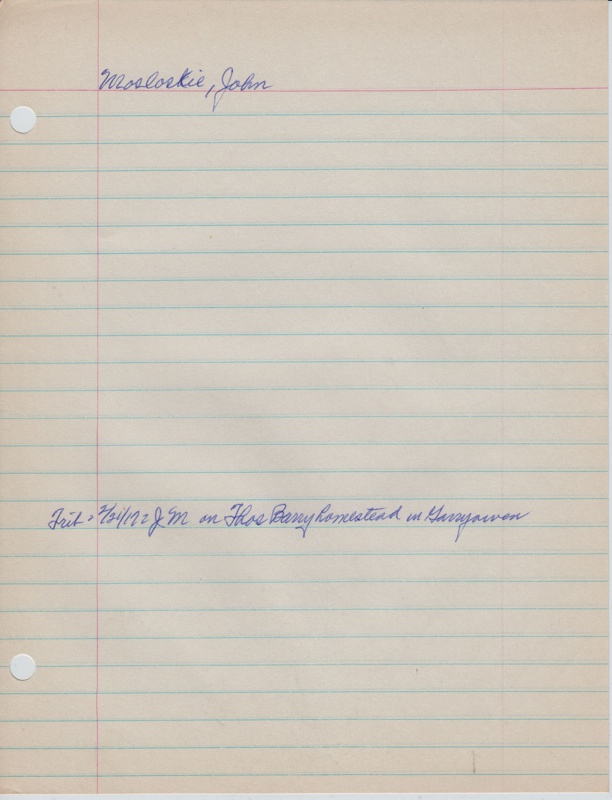 Mosloskie, John
Trib - 2/24/172 J M on Thos Barry homestead in Garryowen